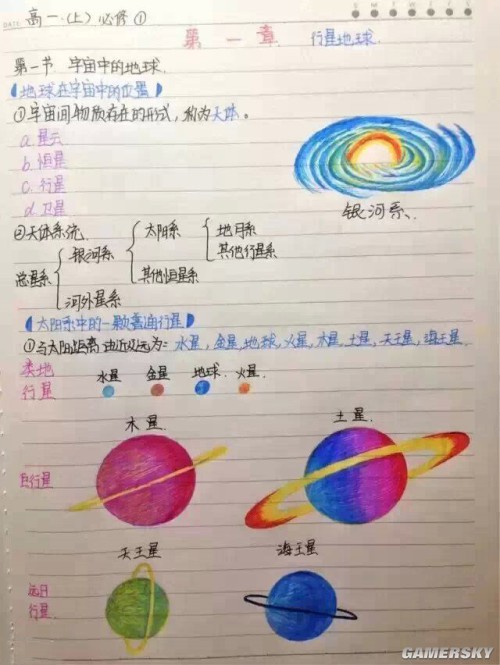 DATE 高一(上)必修①
第一章 行星地球.
第一节 宇宙中的地球.
【地球在宇宙中的位置】
①宇宙间物质存在的形式,称为天体。
a.星云
b.恒星
c.行星
d.卫星
银河系、
②天体系统.
总星系{银河系{太阳系{地月系
其他行星系
其他恒星系
河外星系
【太阳系中的一颗普通行星】
①与太阳距离由近及远为:水星,金星,地球,火星,木星,土星,天王星,海王星.
类地行星 水星 金星 地球. 火星.
木星. 土星.
巨行星
天王星 海王星
远日行星
GAMERSKY